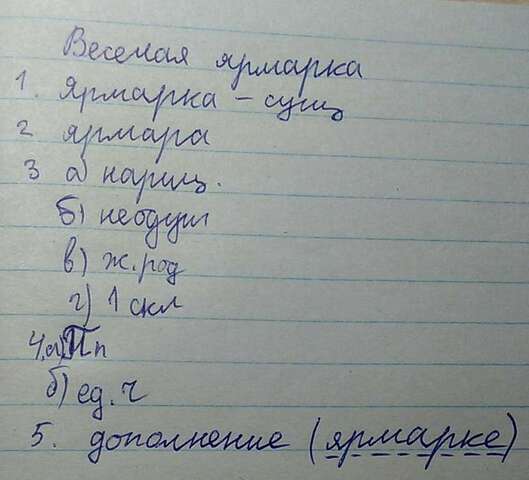 Веселая ярмарка
1. Ярмарка – сущ
2 ярмара
3 а) нариц.
б) неодуш
в) ж. род
г) 1 скл
4. а) П п
б) ед. ч
5. дополнение (ярмарке)